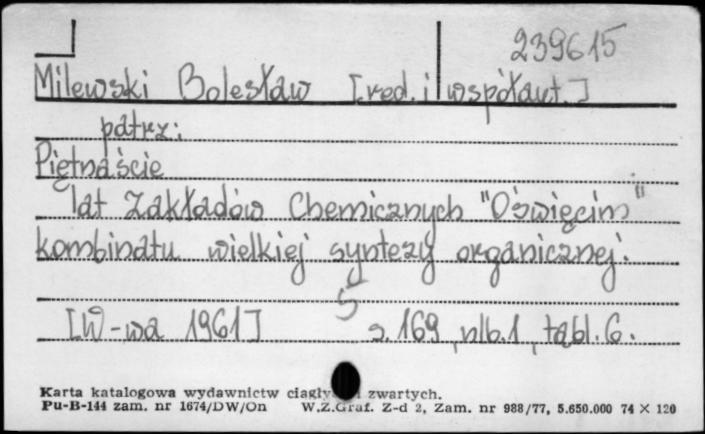 239615
Milewski Bolesław [red. i współaut.]
patrz:
Piętnaście
lat Zakładów Chemicznych "Oświęcim"
kombinatu wielkiej syntezy organicznej.
Ś
[W-wa 1961] s. 169, nlb. 1, tabl. 6.
Karta katalogowa wydawnictw ciągły i zwartych.
Pu-B-144 zam. nr 1674/DW/On W.Z.Graf. Z-d 2, Zam. nr 988/77, 5.650.000 74 × 120